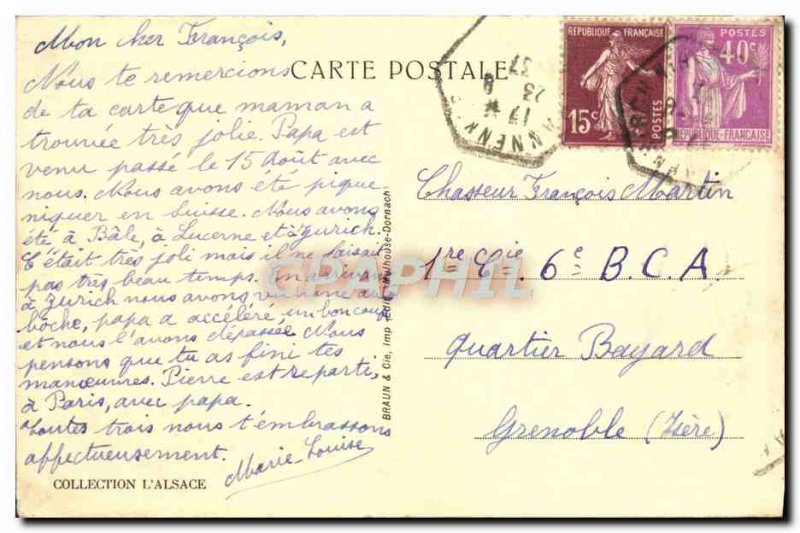 Mon cher François,
Nous te remercions
de ta carte que maman a
trouvée très jolie. Papa est
venu passé le 15 Août avec
nous. Nous avons été pique
niquer en Suisse. Nous avons
été à Bâle, à Lucerne et à Zurich.
C'était très joli mais il ne faisait
pas très beau temps. En arrivant
à Zurich nous avons vu une
bôche, papa a accéléré un bon coup
et nous l'avons dépassée. Nous
pensons que tu as fini tes
manœuvres. Pierre est reparti,
à Paris, avec papa.
Toutes trois nous t'embrassons
affectueusement.
Marie-Louise
COLLECTION L'ALSACE
CARTE POSTALE
BRAUN & Cie, Imp. Edit. Mulhouse-Dornach
REPUBLIQUE FRANÇAISE
15c
POSTES
POSTES
40c
REPUBLIQUE-FRANÇAISE
17
23 8
37
Chasseur François Martin
1re Cie. 6e B.C.A.
Quartier Bayard
Grenoble (Isère)
CPAPHIL